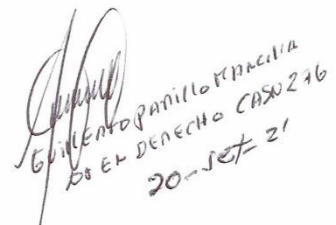 GUILLERMO PADILLA MANCILLA
DR EN DERECHO CASN 276
20-set-21